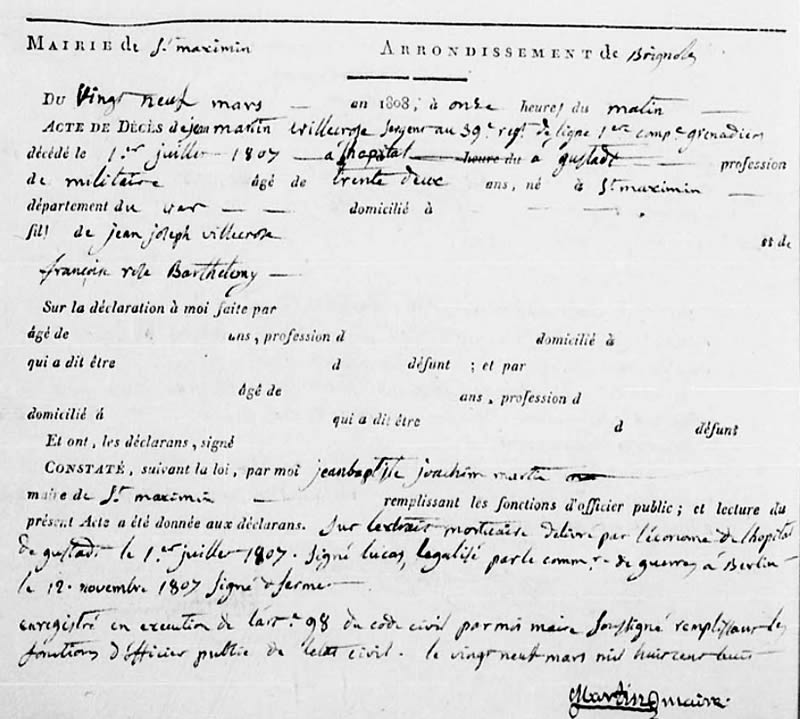 MAIRIE de St. maximin ARRONDISSEMENT de Brignoles
DU Vingt neuf mars — an 1808, à onze heures du matin —
ACTE DE DÉCÈS de jean martin villecroze sergent au 39e. regt. de ligne 1ere compe. grenadiers
décédé le 1.er juillet 1807 — a l'hopital heure du a gustadt — profession
de militaire âgé de trente deux ans, né à St. maximin —
département du var — — domicilié à — —
fils de jean joseph villecroze et de
françoise rose Barthelemy —
Sur la déclaration à moi faite par
âgé de ans, profession d domicilié à
qui a dit être d défunt ; et par
âgé de ans, profession d
domicilié à qui a dit être d défunt
Et ont, les déclarans, signé
CONSTATÉ, suivant la loi, par moi jean baptiste joachim martin
maire de St. maximin — remplissant les fonctions d'officier public ; et lecture du
présent Acte a été donnée aux déclarans. Sur l'extrait mortuaire delivré par l'économe de l'hopital
de gustadt le 1.er juillet 1807. Signé lucas, legalisé par le commre. de guerres à Berlin
le 12. novembre 1807 Signé
enregistré en execution de l'art. 98 du code civil par moi maire Soussigné remplissant les
fonctions d'officier public de l'etat civil. le vingt neuf mars mil huit cent huit
Martin maire.